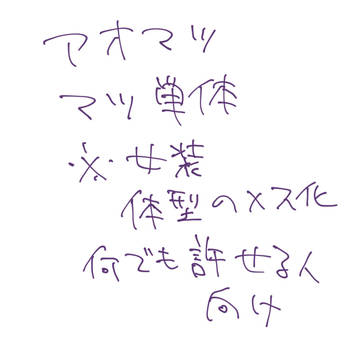 アオマツ
マツ単体
※女装
体型のメス化
何でも許せる人
向け